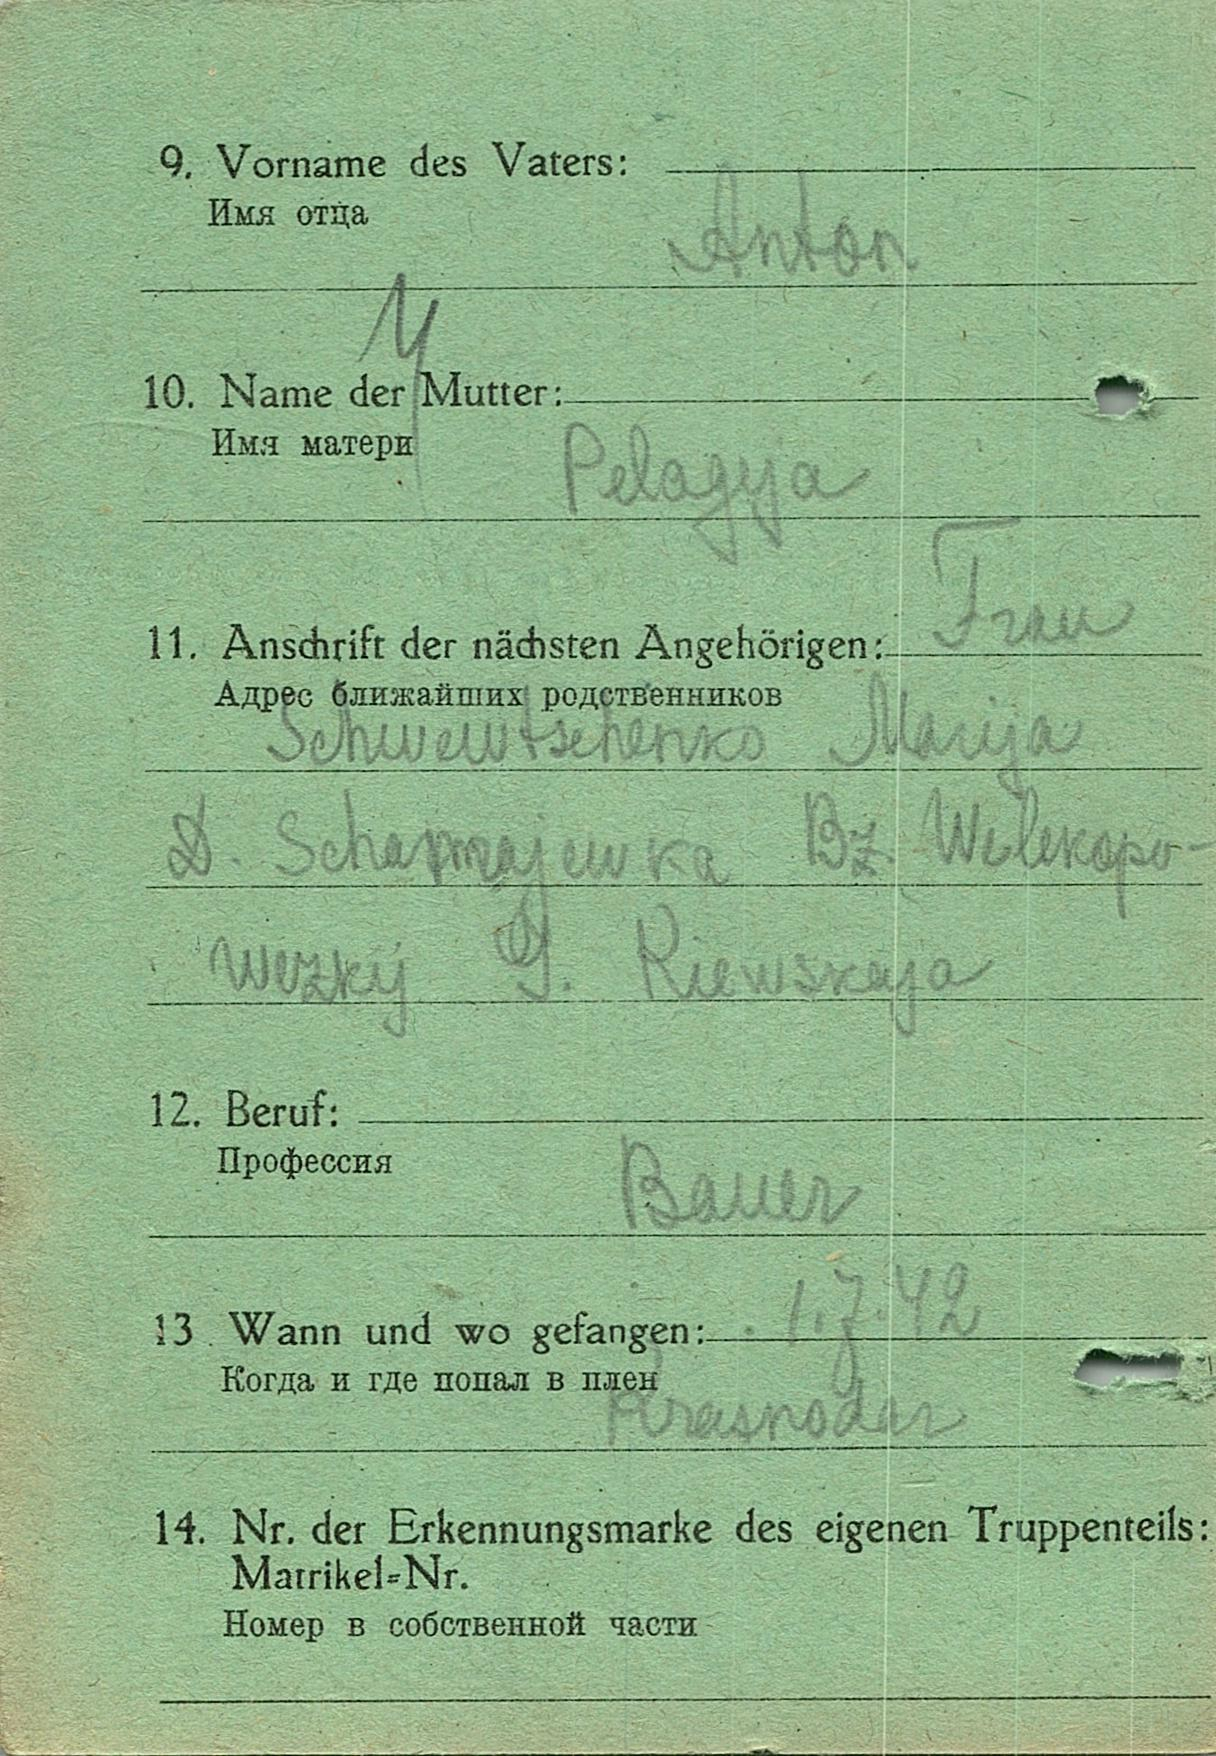 9. Vorname des Vaters:
Имя отца
Anton
10. Name der Mutter:
Имя матери
Pelagyja
11. Anschrift der nächsten Angehörigen: Frau
Адрес ближайших родственников
Schwewtschenko Marija
D. Bz.
wezkij G. Kiewskaja
12. Beruf:
Профессия
Bauer
13. Wann und wo gefangen: 1.7.42
Когда и где попал в плен
Krasnodar
14. Nr. der Erkennungsmarke des eigenen Truppenteils:
Matrikel-Nr.
Номер в собственной части